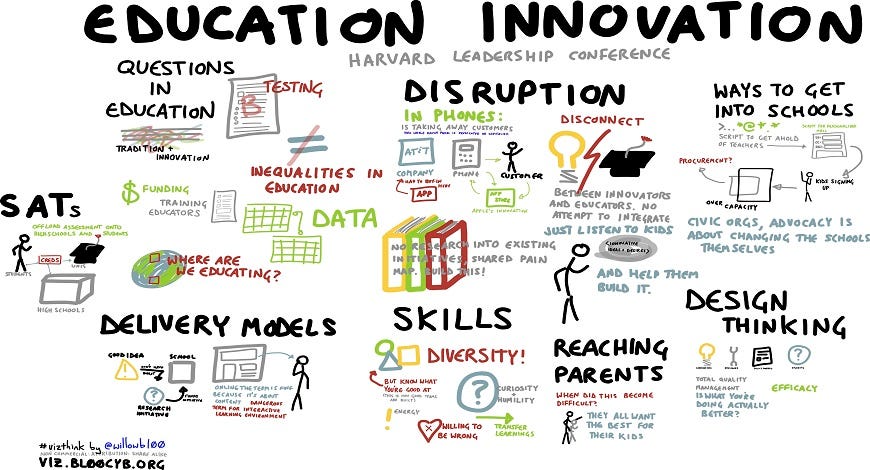 EDUCATION INNOVATION
HARVARD LEADERSHIP CONFERENCE
QUESTIONS
IN
EDUCATION
TRADITION +
INNOVATION
B
TESTING
INEQUALITIES IN
EDUCATION
$ FUNDING
TRAINING
EDUCATORS
DATA
WHERE ARE
WE EDUCATING?
SATs
OFFLOAD ASSESSMENT ONTO
HIGHSCHOOLS AND STUDENTS
STUDENTS
CREDS
UNIS
HIGH SCHOOLS
DISRUPTION
IN PHONES:
IS TAKING AWAY CUSTOMERS
AT&T
COMPANY
PHONE
CUSTOMER
APP
APP
STORE
APPLE'S INNOVATION
DISCONNECT
BETWEEN INNOVATORS
AND EDUCATORS. NO
ATTEMPT TO INTEGRATE
JUST LISTEN TO KIDS
AND HELP THEM
BUILD IT.
NO RESEARCH INTO EXISTING
INITIATIVES, SHARED PAIN
MAP. BUILD THIS!
WAYS TO GET
INTO SCHOOLS
>... *@+.*
SCRIPT TO GET AHOLD
OF TEACHERS
SCRIPT FOR PERSONALIZED
PROCUREMENT?
OVER CAPACITY
KIDS SIGNING
UP
CIVIC ORGS, ADVOCACY IS
ABOUT CHANGING THE SCHOOLS
THEMSELVES
DELIVERY MODELS
GOOD IDEA
SCHOOL
RESEARCH
INITIATIVE
ONLINE THE TERM IS
BECAUSE IT'S ABOUT
CONTENT DANGEROUS
TERM FOR INTERACTIVE
LEARNING ENVIRONMENT
SKILLS
DIVERSITY!
BUT KNOW WHAT
YOU'RE GOOD AT
! ENERGY
?
CURIOSITY
+
HUMILITY
WILLING TO
BE WRONG
TRANSFER
LEARNINGS
REACHING
PARENTS
WHEN DID THIS BECOME
DIFFICULT?
THEY ALL WANT
THE BEST FOR
THEIR KIDS
DESIGN
THINKING
TOTAL QUALITY
MANAGEMENT
IS WHAT YOU'RE
DOING ACTUALLY
BETTER?
EFFICACY
#vizthink by @willowbl00
NON COMMERCIAL ATTRIBUTION SHARE ALIKE
VIZ.BL00CYB.ORG